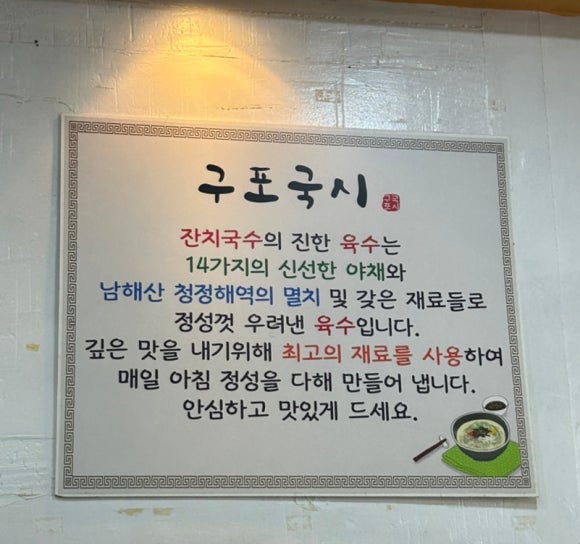 구포국시
구포국시
잔치국수의 진한 육수는
14가지의 신선한 야채와
남해산 청정해역의 멸치 및 갖은 재료들로
정성껏 우려낸 육수입니다.
깊은 맛을 내기위해 최고의 재료를 사용하여
매일 아침 정성을 다해 만들어 냅니다.
안심하고 맛있게 드세요.